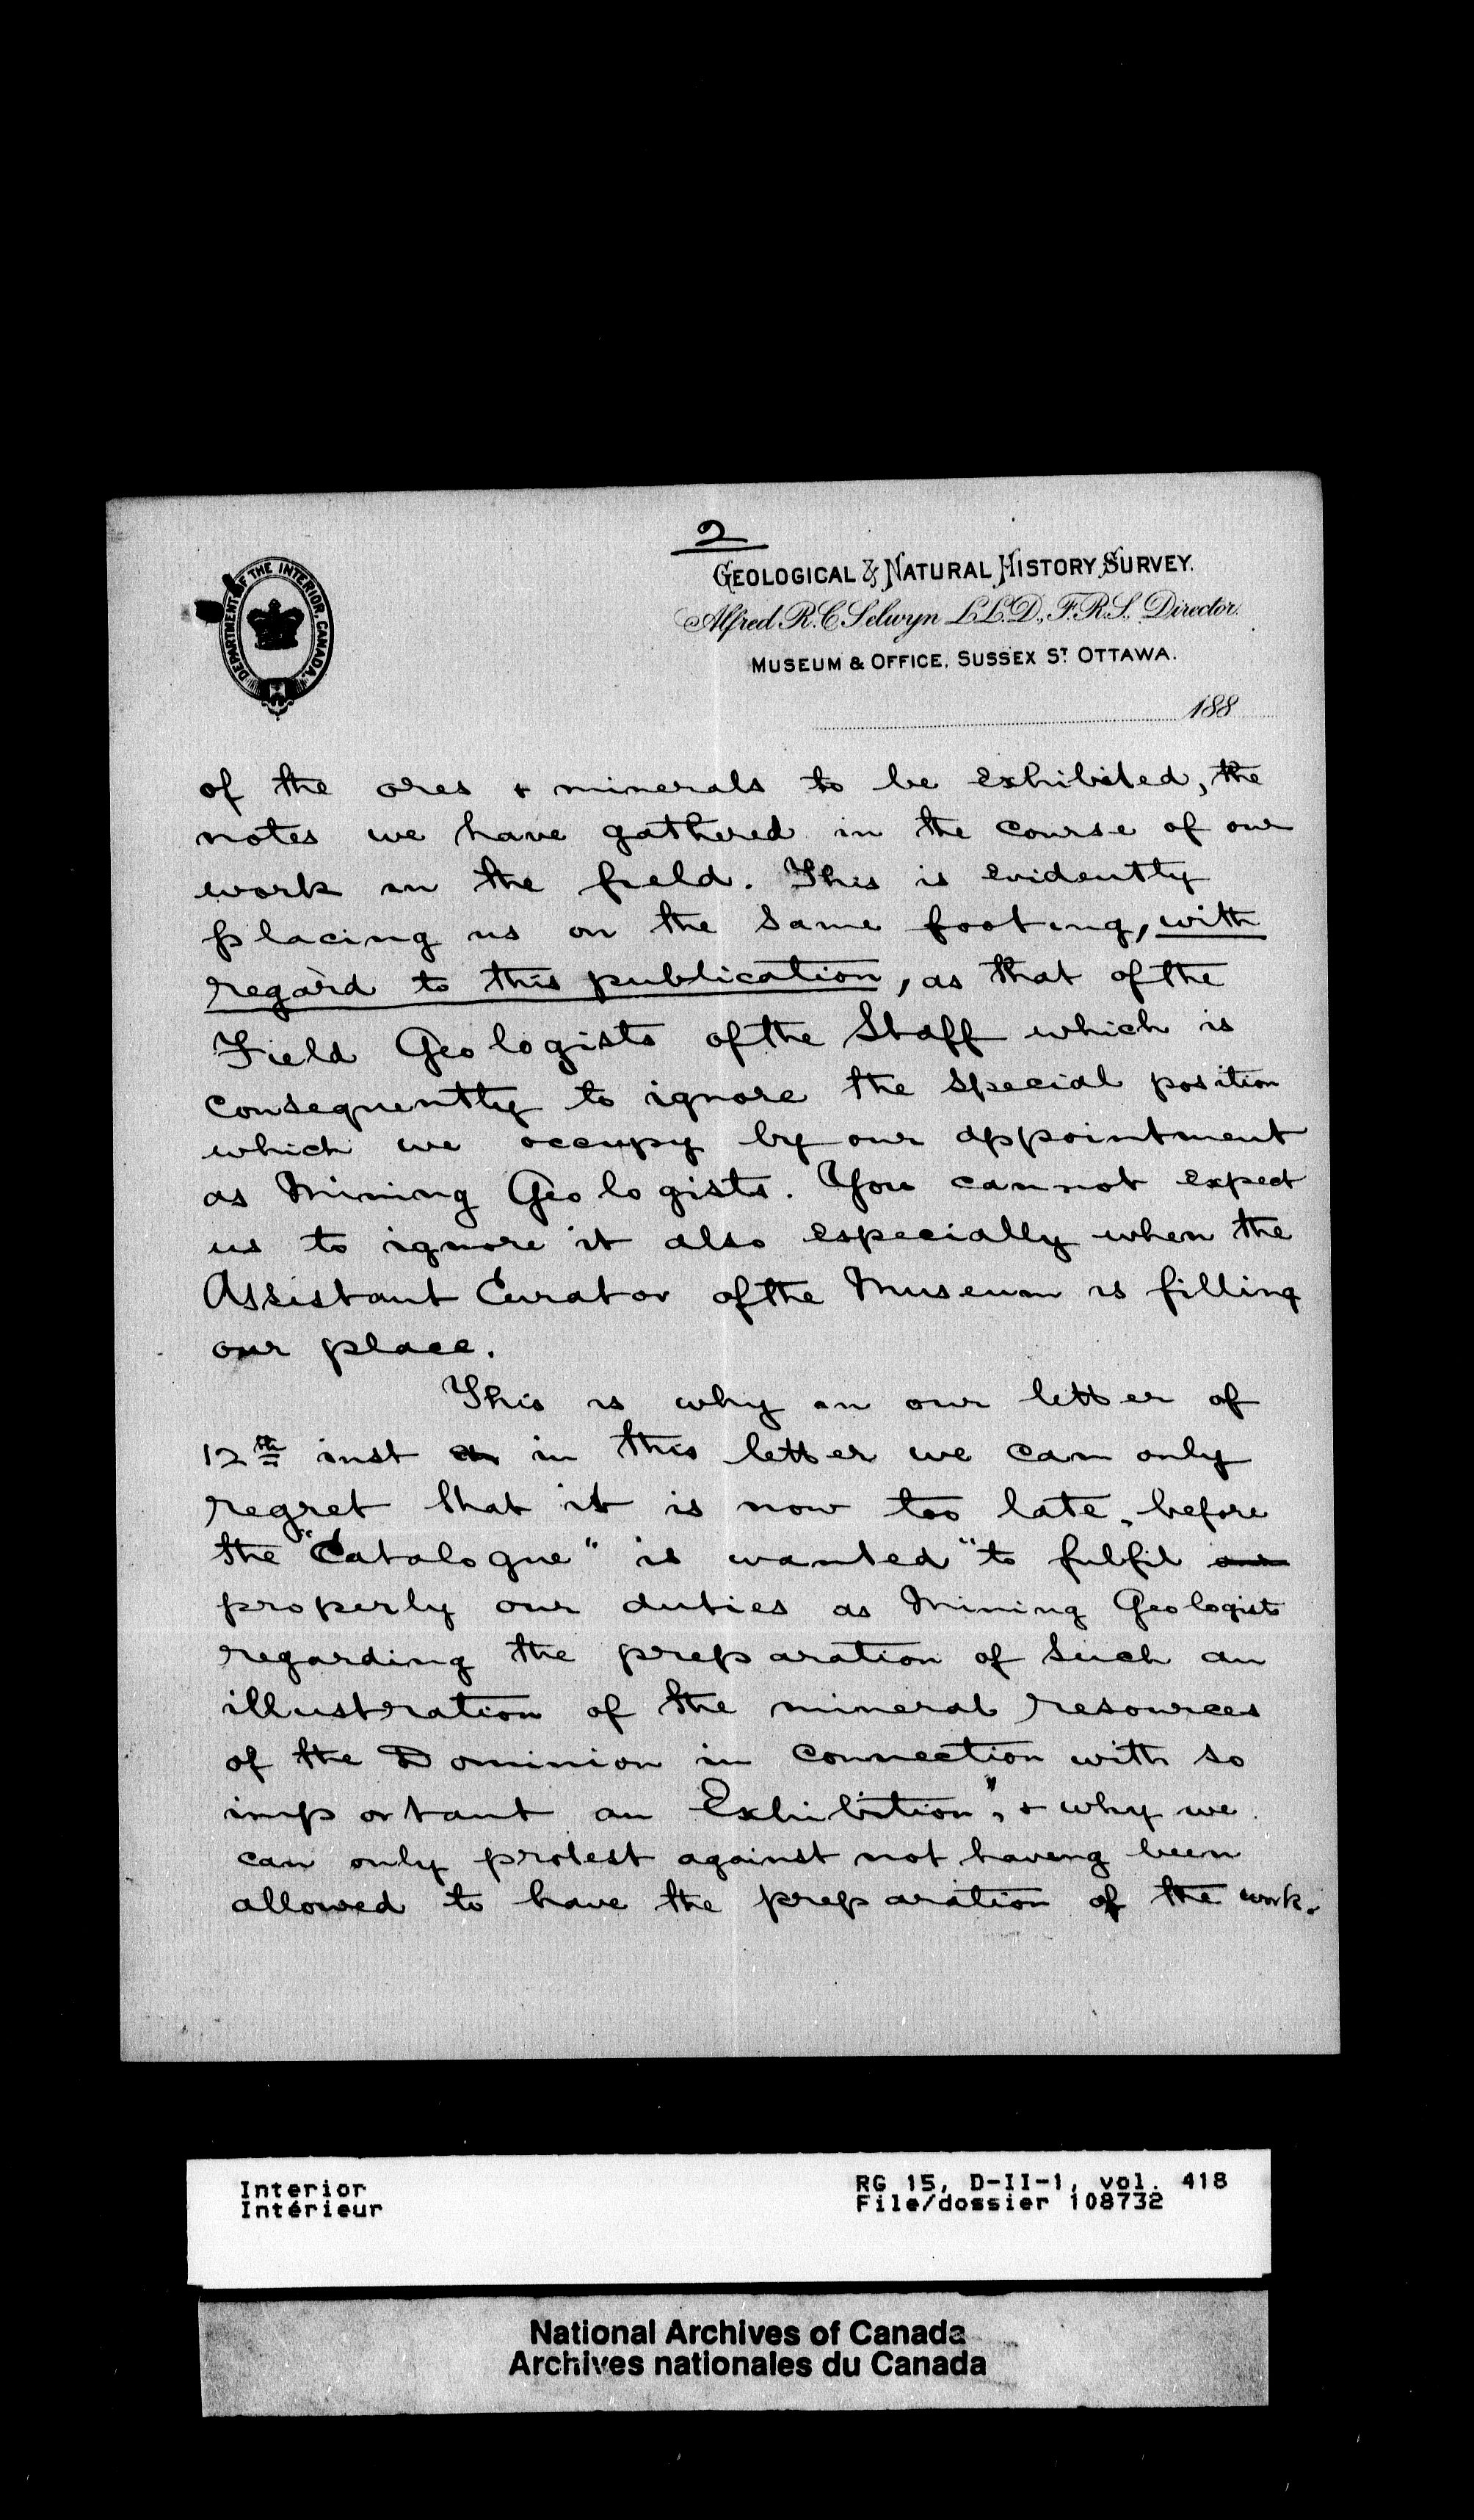 2
DEPARTMENT OF THE INTERIOR, CANADA.
GEOLOGICAL & NATURAL HISTORY SURVEY.
Alfred R. C. Selwyn LL.D., F.R.S., Director.
MUSEUM & OFFICE, SUSSEX ST. OTTAWA.
188
of the ores & minerals to be exhibited, the
notes we have gathered in the course of our
work in the field. This is evidently
placing us on the same footing, with
regard to this publication, as that of the
Field Geologists of the Staff which is
consequently to ignore the special position
which we occupy by our appointment
as Mining Geologists. You cannot expect
us to ignore it also especially when the
Assistant Curator of the Museum is filling
our place.
This is why in our letter of
12th inst in this letter we can only
regret that it is now too late, before
the "Catalogue" is wanted "to fulfil our
properly our duties as Mining Geologists
regarding the preparation of such an
illustration of the mineral resources
of the Dominion in connection with so
important an Exhibition", & why we
can only protest against not having been
allowed to have the preparation of the work.
Interior
Intérieur
RG 15, D-II-1, vol. 418
File/dossier 108732
National Archives of Canada
Archives nationales du Canada